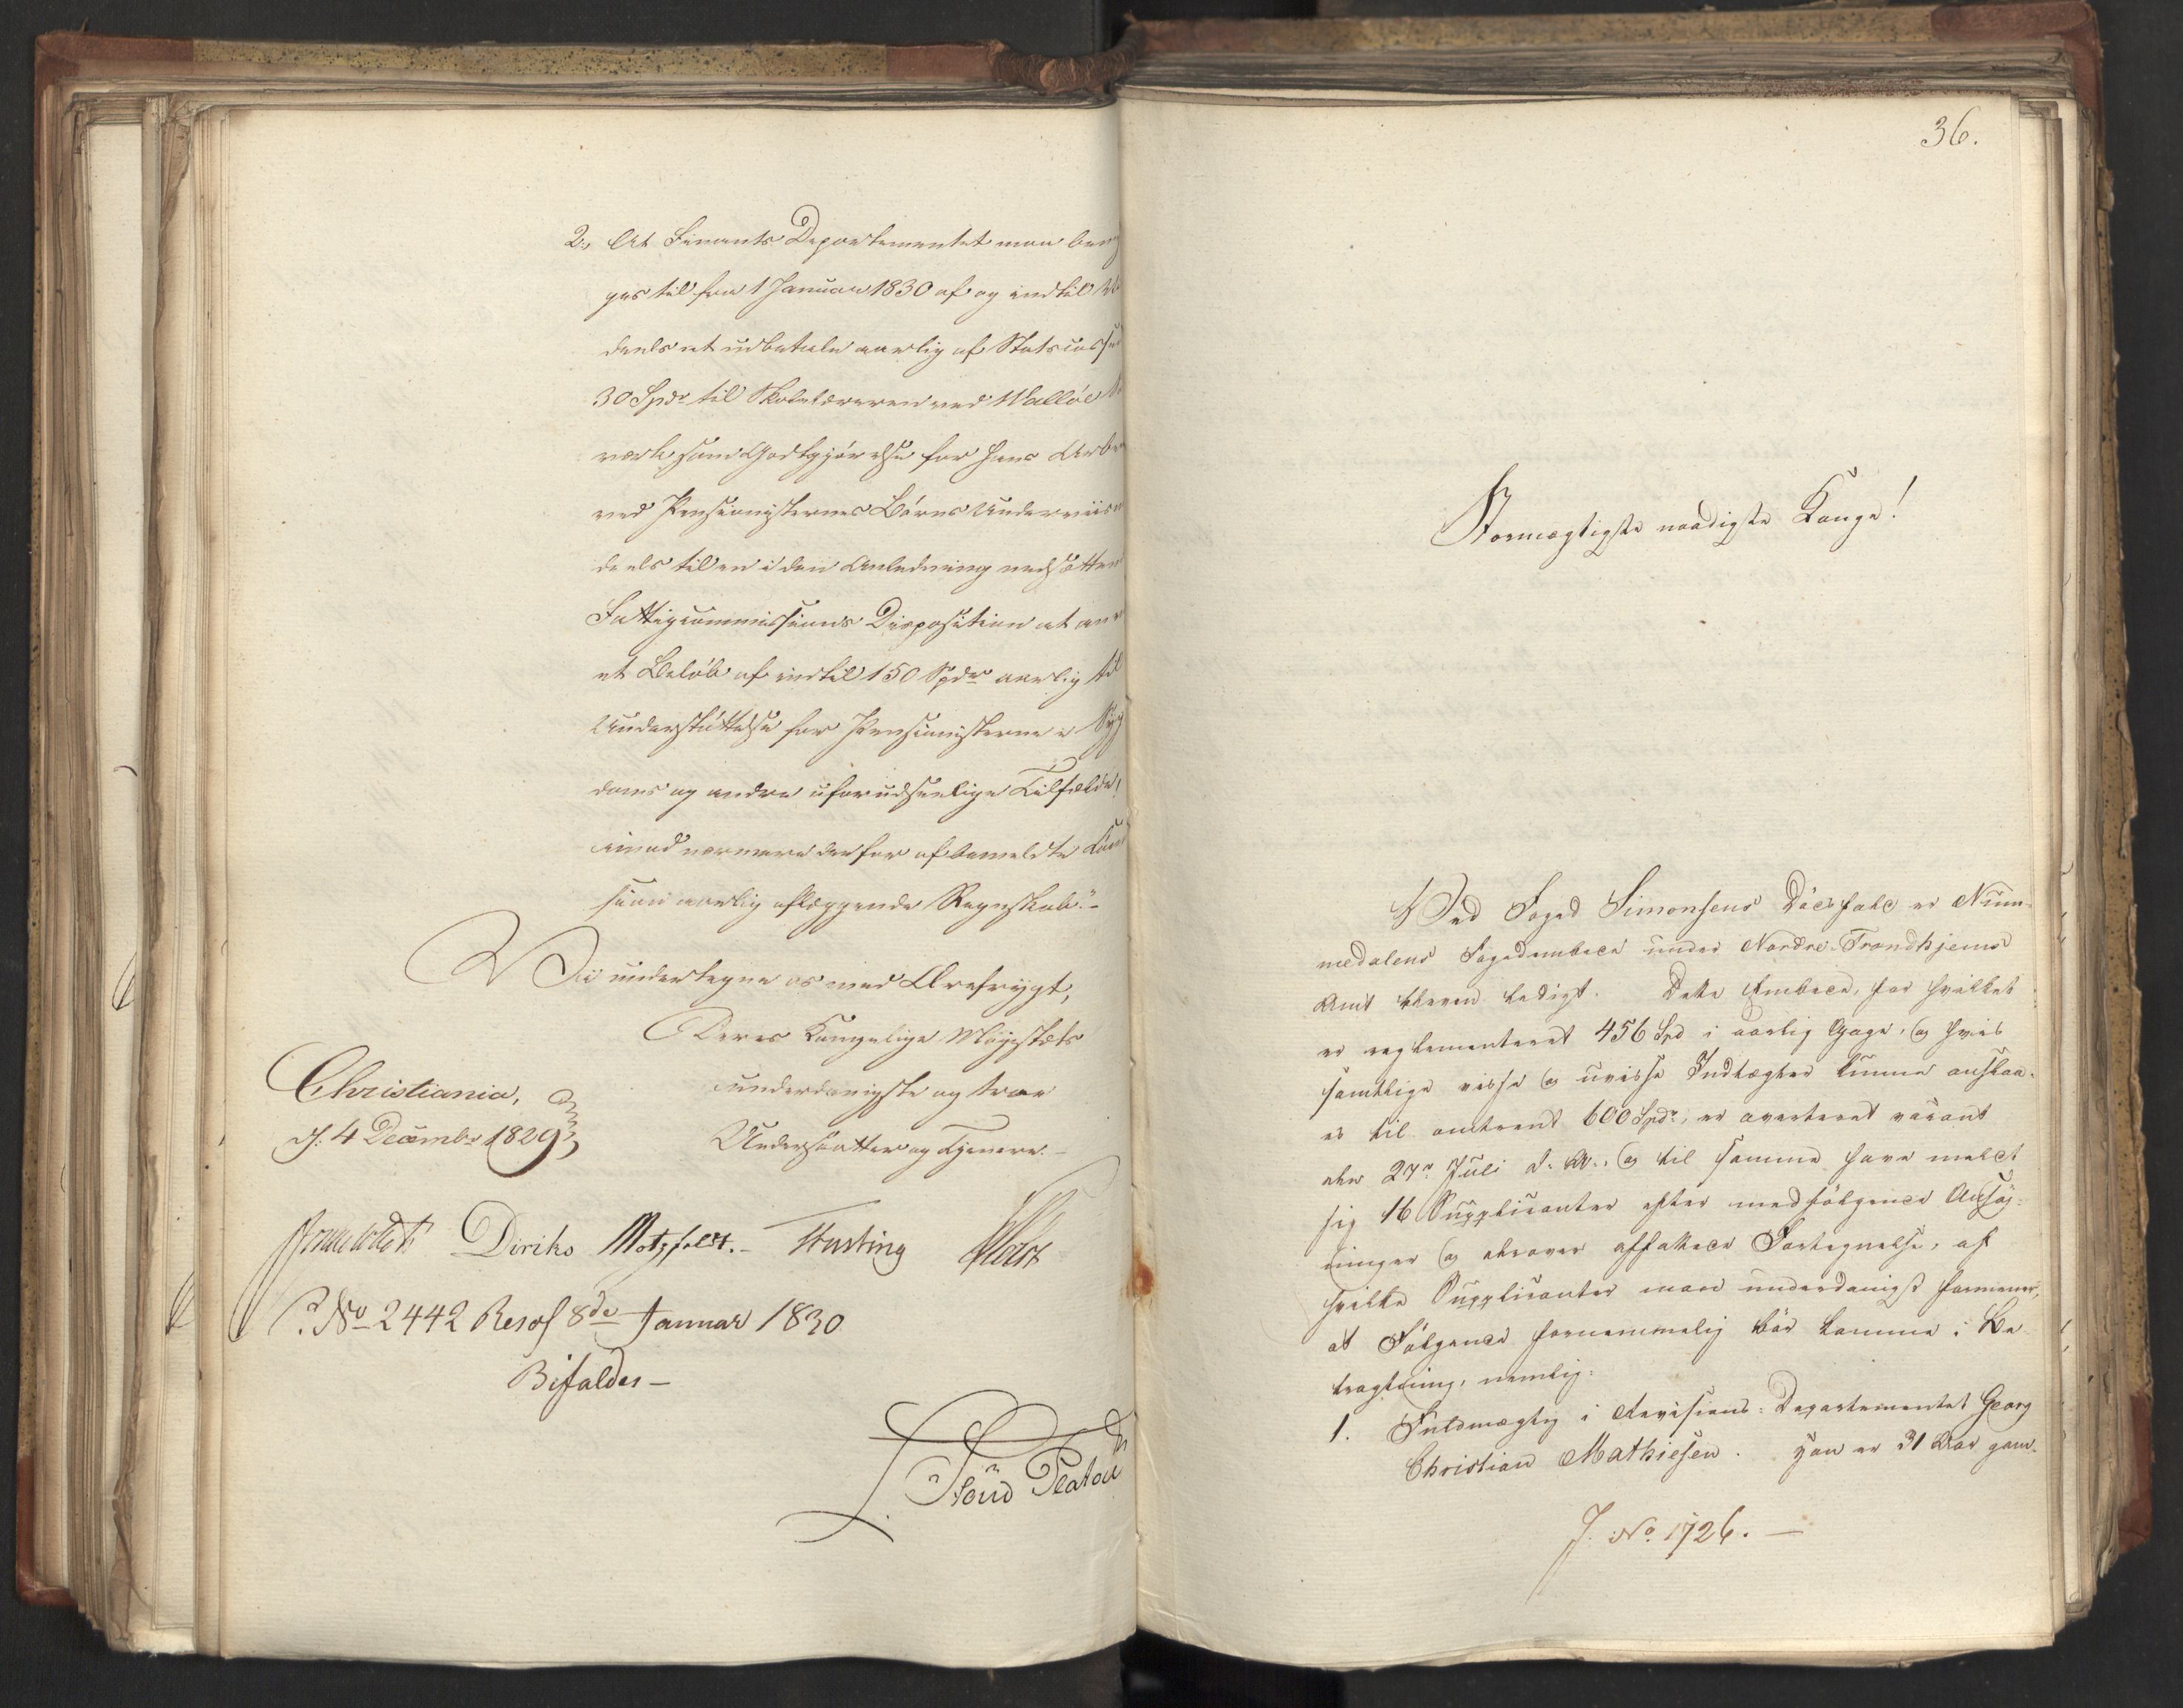 2, At Finants Departementet maa
ges til fra 1 Januar 1830 af og indtil
deels at udbetale aarlig af Statscassen
30 Spdr til Skolelæreren ved Walløe
værk som Godtgjørelse for hans
ved Pensionisternes Børns Underviis
deels til en i den Anledning nedsatten
Fattigcommissions Disposition at
et Beløb af indtil 150 Spdr aarlig til
Understøttelse for Pensionisterne i Syg
doms og andre uforudseelige Tilfælde,
imod nærmere derfor af bemeldte Com
sion aarlig aflæggende Regnskab."-
Vi undertegne os med Ærefrygt,
Deres Kongelige Majestæts
underdanigste og troe
Undersaatter og Tjenere.-
Christiania,
d: 4 Decembr 1829
Diriks Motzfeldt.- Fasting Holst
P. No 2442 Resol 8de Januar 1830
Bifaldes -
Stoud Platou
36.
Stormægtigste naadigste Konge!
Ved Foged Simonsens Dødsfald er Num-
medalens Fogedembede under Nordre-Trondhjems
Amt bleven ledigt. Dette Embede, for hvilket
er reglementeret 456 Spd i aarlig Gage, og hvis
samtlige visse og uvisse Indtægter kunne anslaa-
es til omtrent 600 Spdr, er averteret vacant
den 27de Juli d. A., og til samme have meldt
sig 16 Supplicanter efter medfølgende Ansøg-
ninger og derover affattede Fortegnelse, af
hvilke Supplicanter man underdanigst formener,
at Følgende fornemmelig bør komme i Be
tragtning, nemlig:
1. Fuldmægtig i Revisions-Departementet Georg
Christian Mathiesen. Han er 31 Aar gam-
J. No. 1726. -